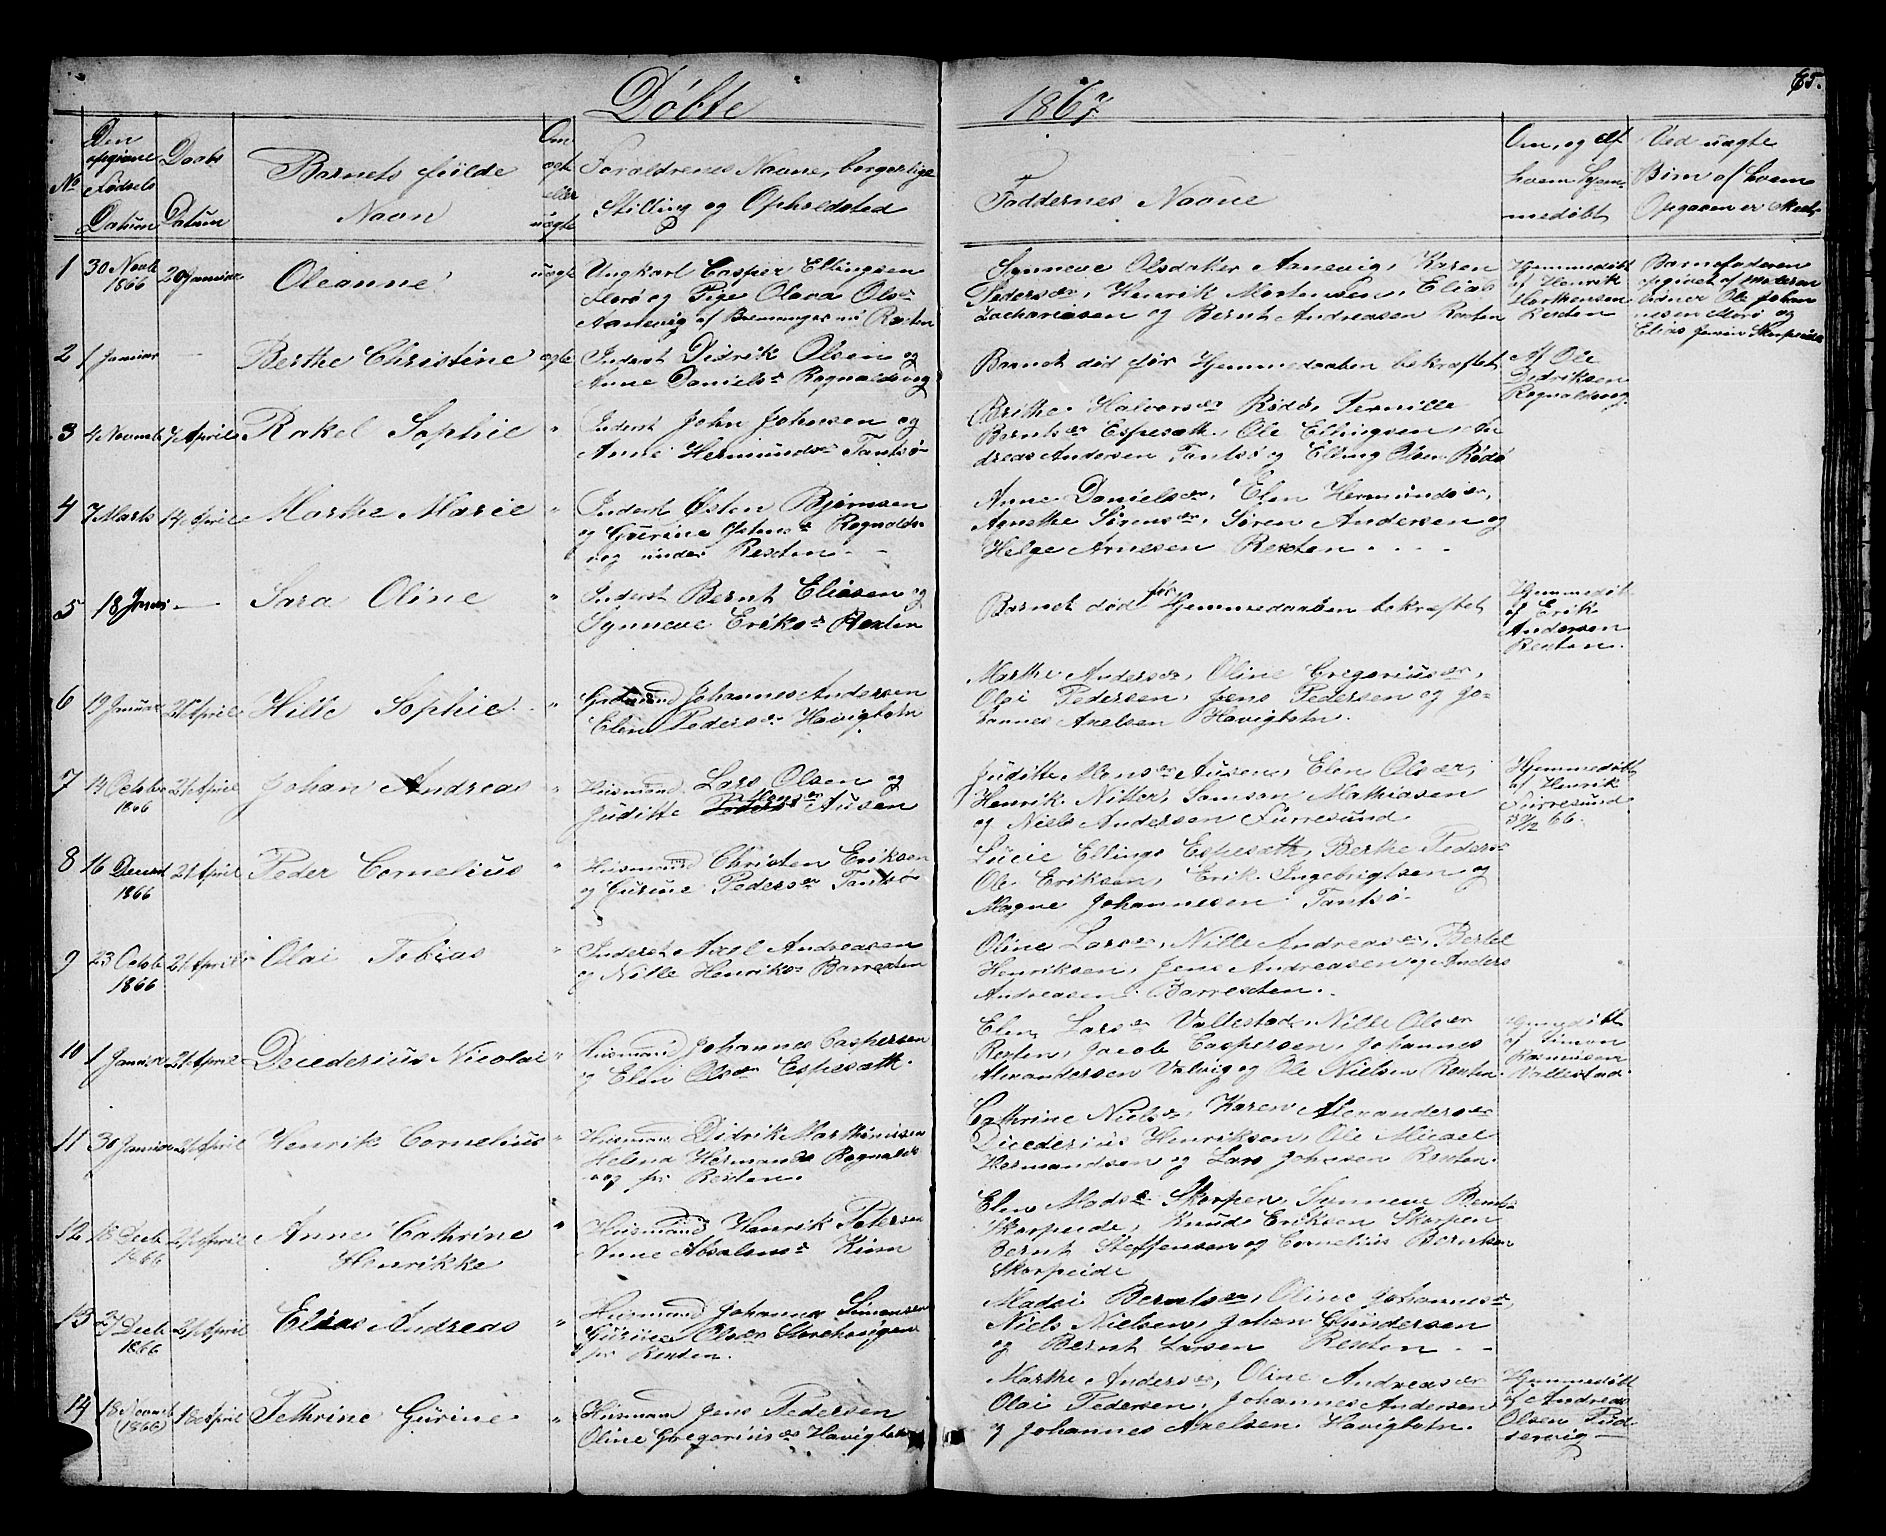 Døbte
1867
65.
No
Den opgivne Fødsels Datum
Daabs Datum
Barnets fulde Navn
Om ægte eller uægte
Forældrenes Navne, borgerlige Stilling og Opholdsted
Faddernes Navne
Om, og af hvem hjemmedøbt
Ved uægte Børn af hvem Opgaven er
1
30 Novb 1866
20 Januar
Oleanne
uægte
Ungkarl Casper Ellingsen
Florø og Pige Olava Ols
Aanevig af Bremanger nu Rexten
Synneve Olsdatter Aanevig, Karen
Peders, Henrik Mortensen, Elias
Zachariasen og Bernt Andreasen Rexten
Hjemmedøbt
af Henrik
Morthensen
Rexten
Barnefaderen
opgivet af Moderen
Ole Johan
nesen Florø og
Elias
2
1 Januar
—
Berthe Christine
ægte
Inderst Didrik Olsen og
Anne Daniels Rognaldsvog
Barnet død før Hjemmedaaben bekræftet
Af Ole
Didriksen
Rognaldsvog
3
4 Novmb
7 April
Rakel Sophie
"
Inderst John Johnsen og
Anne Hermunds Tantsø
Brithe Halvors Rødø, Pernille
Bernts Espesæth, Ole Ellingsen, An
dreas Andersen Tantsø og Elling Olsen Rødø
4
7 Marts
14 April
Marthe Marie
"
Inderst Østen Bjørnsen
og Gurine Johns Rognalds-
vog under Rexten
Anne Daniels, Elen Hermunds,
Agnethe Sørens, Søren Andersen og
Helge Arnesen Rexten
5
18 Januar
—
Sara Oline
"
Inderst Bernt Eliasen og
Synneve Eriks Rexten
Barnet død før Hjemmedaaben bekræftet
Hjemmedøbt
af Erik
Andersen
Rexten
6
19 Januar
21 April
Hille Sophie
"
Johannes Andersen
Elen Peders Havigbotn
Marthe Anders, Oline Gregorius,
Olai Pedersen, Jens Pedersen og Jo-
hannes Axelsen Havigbotn.
7
14 Octobr 1866
21 April
Johan Andreas
"
Husmand Lars Olsen og
Juditte Mons Ausen
Juditte Mons Ausen, Elen Ols,
Henrik Nitter, Samson Mathiasen
og Niels Andersen Furresund
Hjemmedøbt
af Henrik
Furresund
8
16 Decemb 1866
21 April
Peder Cornelius
"
Husmand Christen Eriksen
og Gurine Peders Tantsø
Lucie Ellings Espesæth, Berthe Peders
Ole Eriksen, Erik Ingebrigtsen og
Magne Johannesen Tantsø.
9
23 Octob 1866
21 April
Olai Tobias
"
Inderst Axel Andreasen
og Nille Henriks Barrexten
Oline Lars, Nille Andreas, Bertel
Henriksen, Jens Andreasen og Anders
Andreasen Barrexten.
10
1 Januar
21 April
Decederius Nicolai
"
Husmand Johannes Caspersen
og Elen Ols Espesæth.
Elen Lars Vallestad, Nille Ols
Rexten, Jacob Caspersen, Johannes
Alexandersen Valvig og Ole Nielsen Rexten.
Hjemmedøbt
af Simon
Rasmusen
Vallestad.
11
30 Januar
21 April
Henrik Cornelius
"
Husmand Didrik Marthinusen
Helena Hermands Rognalds-
vog pr Rexten.
Cathrine Niels, Karen Alexanders
Ducederius Henriksen, Ole Mikael
Hermandsen og Lars Johnsen Rexten.
12
18 Decb 1866
21 April
Anne Cathrine
Henrikke
"
Husmand Henrik Petersen
Anne Absalons Kinn
Elen Mads Skorpen, Synneve Bernts
Skorpeide, Knud Eriksen Skorpen
Bernt Steffensen og Cornelius Berntsen
Skorpeide
13
27 Decb 1866
21 April
Elias Andreas
"
Husmand Johannes Simonsen
Gurine Ols Storehaugen
pr Rexten.
Madsi Bernts, Oline Johannes,
Niels Nielsen, Johan Gundersen
og Bernt Larsen Rexten
14
18 Novmb (1866)
18 April
Pethrine Gurine
"
Husmand Jens Pedersen
Oline Gregorius Havigbotn
Marthe Anders, Oline Andreas
Olai Pedersen, Johannes Andersen
og Johannes Axelsen Havigbotn.
Hjemmedøbt
af Andreas
Olsen